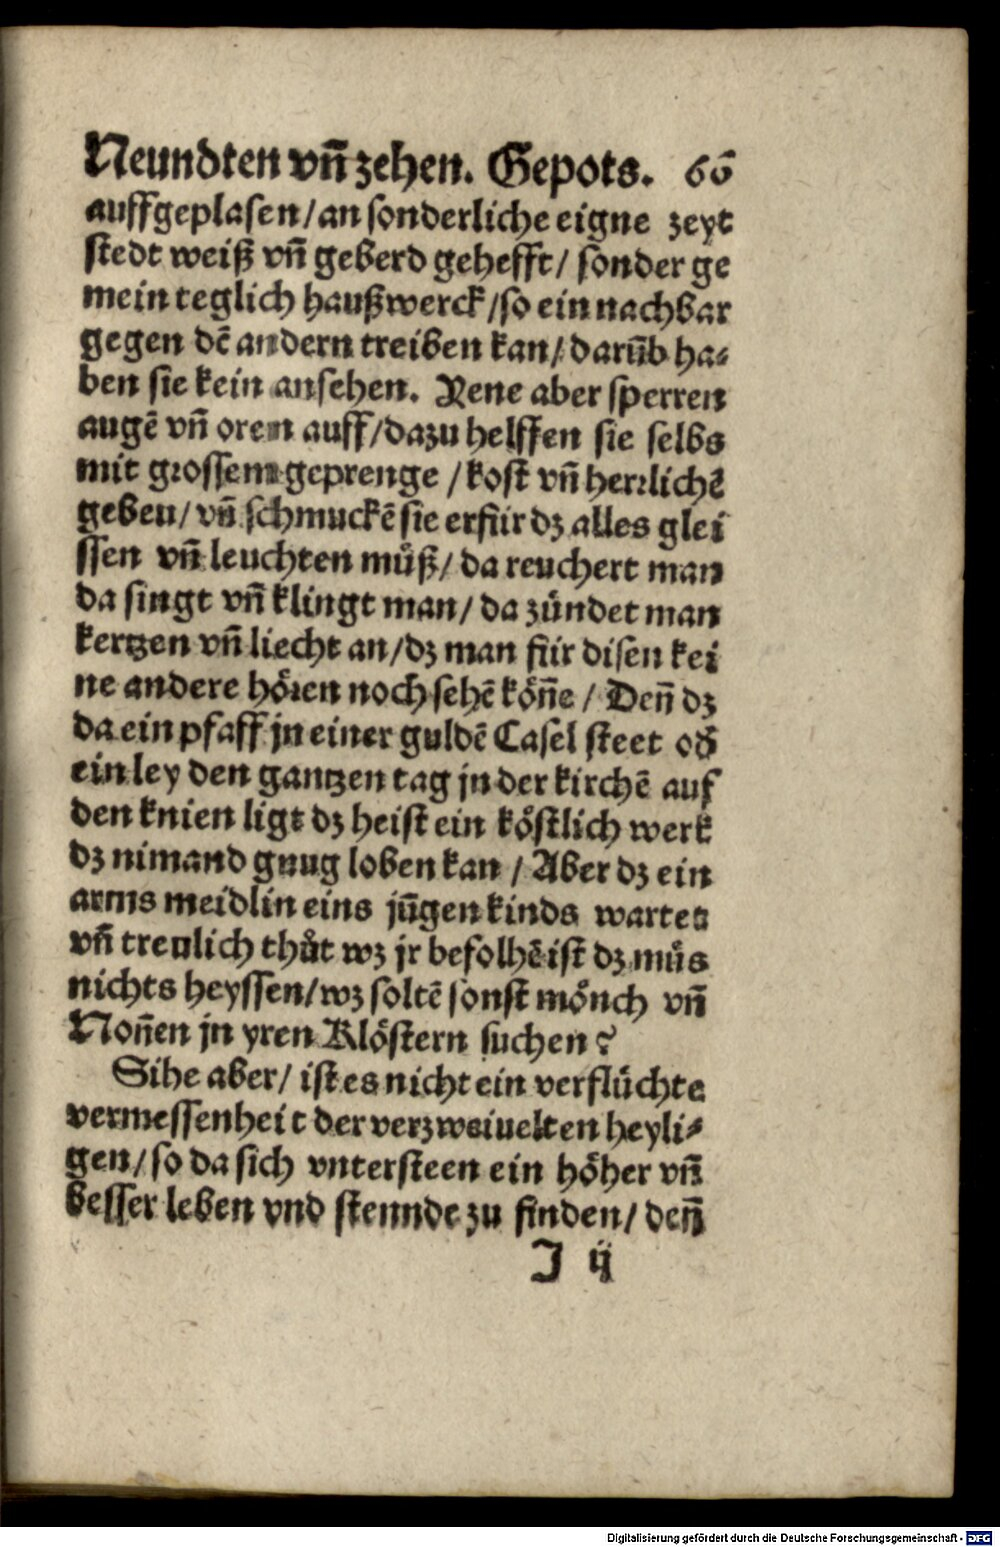 Neundten vn̄ zehen. Gepots. 66
auffgeplasen/an sonderliche eigne zeyt
stedt weiß vn̄ geberd gehefft/ sōnder ge
mein teglich haußwerck/so ein nachbar
gegen dē andern treiben kan/ darūb ha⸗
ben sie kein ansehen. Yene aber sperren
augē vn̄ oren auff/dazu helffen sie selbs
mit grossem geprenge /kost vn̄ herꝛlichē
gebeu/ vn̄ schmuckē sie erfür dz alles glei
ssen vn̄ leuchten muͦß/ da reuchert man
da singt vn̄ klingt man/ da zündet man
kertzen vn̄ liecht an/dz man für disen kei
ne andere hoͤꝛen noch sehē koͤn̄e / Den̄ dz
da ein pfaff jn einer guldē Casel steet od̕
ein ley den gantzen tag jn der kirchē auf
den knien ligt dz heist ein koͤstlich werk
dz nimand gnug loben kan / Aber dz ein
arms meidlin eins jūgen kinds wartet
vn̄ treulich thuͦt wz jr befolhē ist dz muͦs
nichts heyssen/wz soltē sonst moͤnch vn̄
Non̄en jn yren Kloͤstern suchen?
Sihe aber/ ist es nicht ein verfluͦchte
vermessenheit der verzweiuelten heyli⸗
gen/so da sich vntersteen ein hoͤher vn̄
besser leben vnd stennde zu finden/ den̄
J ij
Digitalisierung gefördert durch die Deutsche Forschungsgemeinschaft - DFG